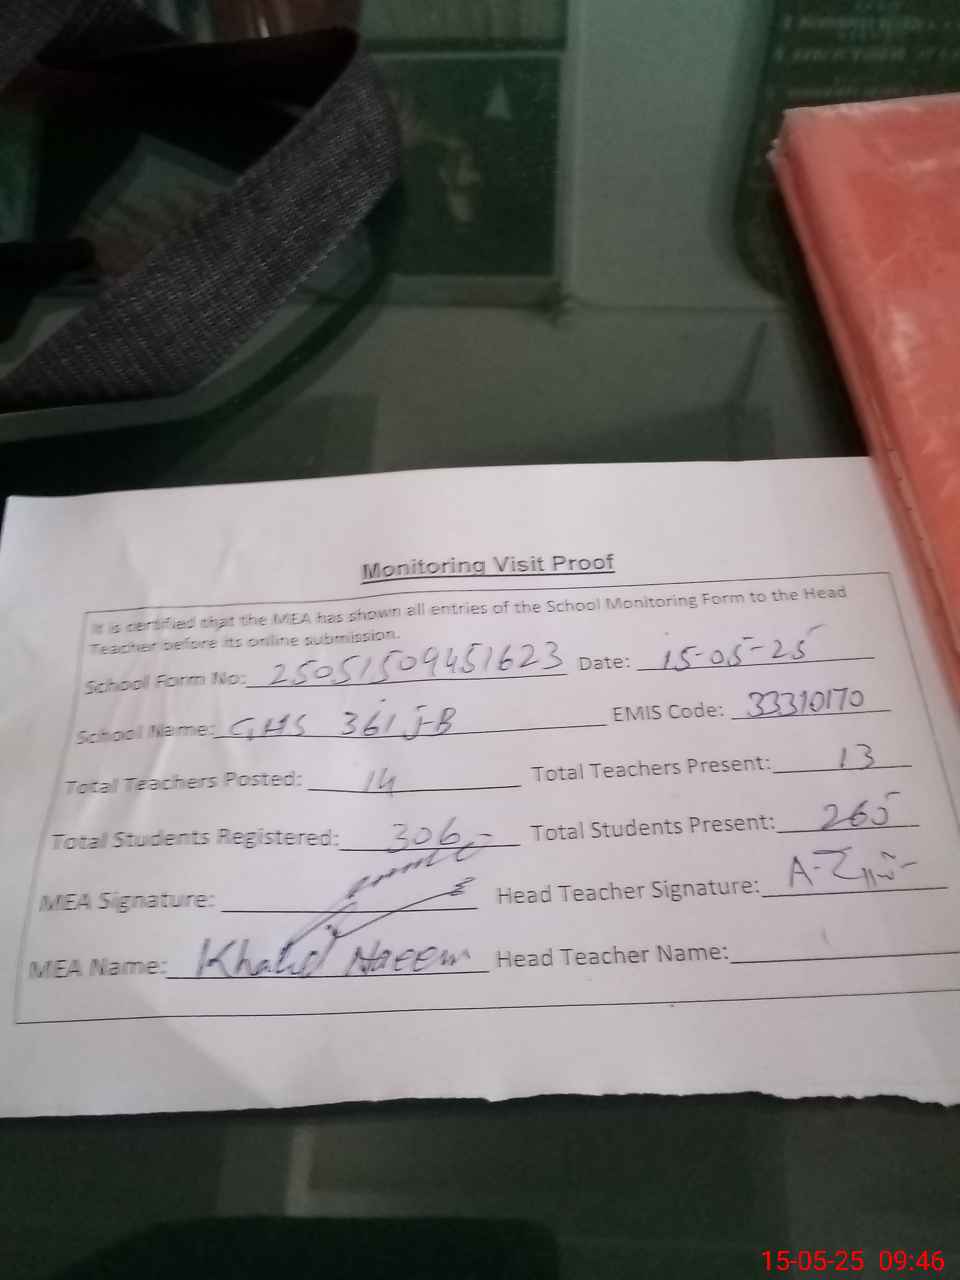 Monitoring Visit Proof
It is certified that the MEA has shown all entries of the School Monitoring Form to the Head
Teacher before its online submission.
School Form No: 25051509451623 Date: 15-05-25
School Name: GHS 361 J-B EMIS Code: 33310170
Total Teachers Posted: 14 Total Teachers Present: 13
Total Students Registered: 306 Total Students Present: 265
MEA Signature: Head Teacher Signature:
MEA Name: Khalid Naeem Head Teacher Name:
15-05-25 09:46